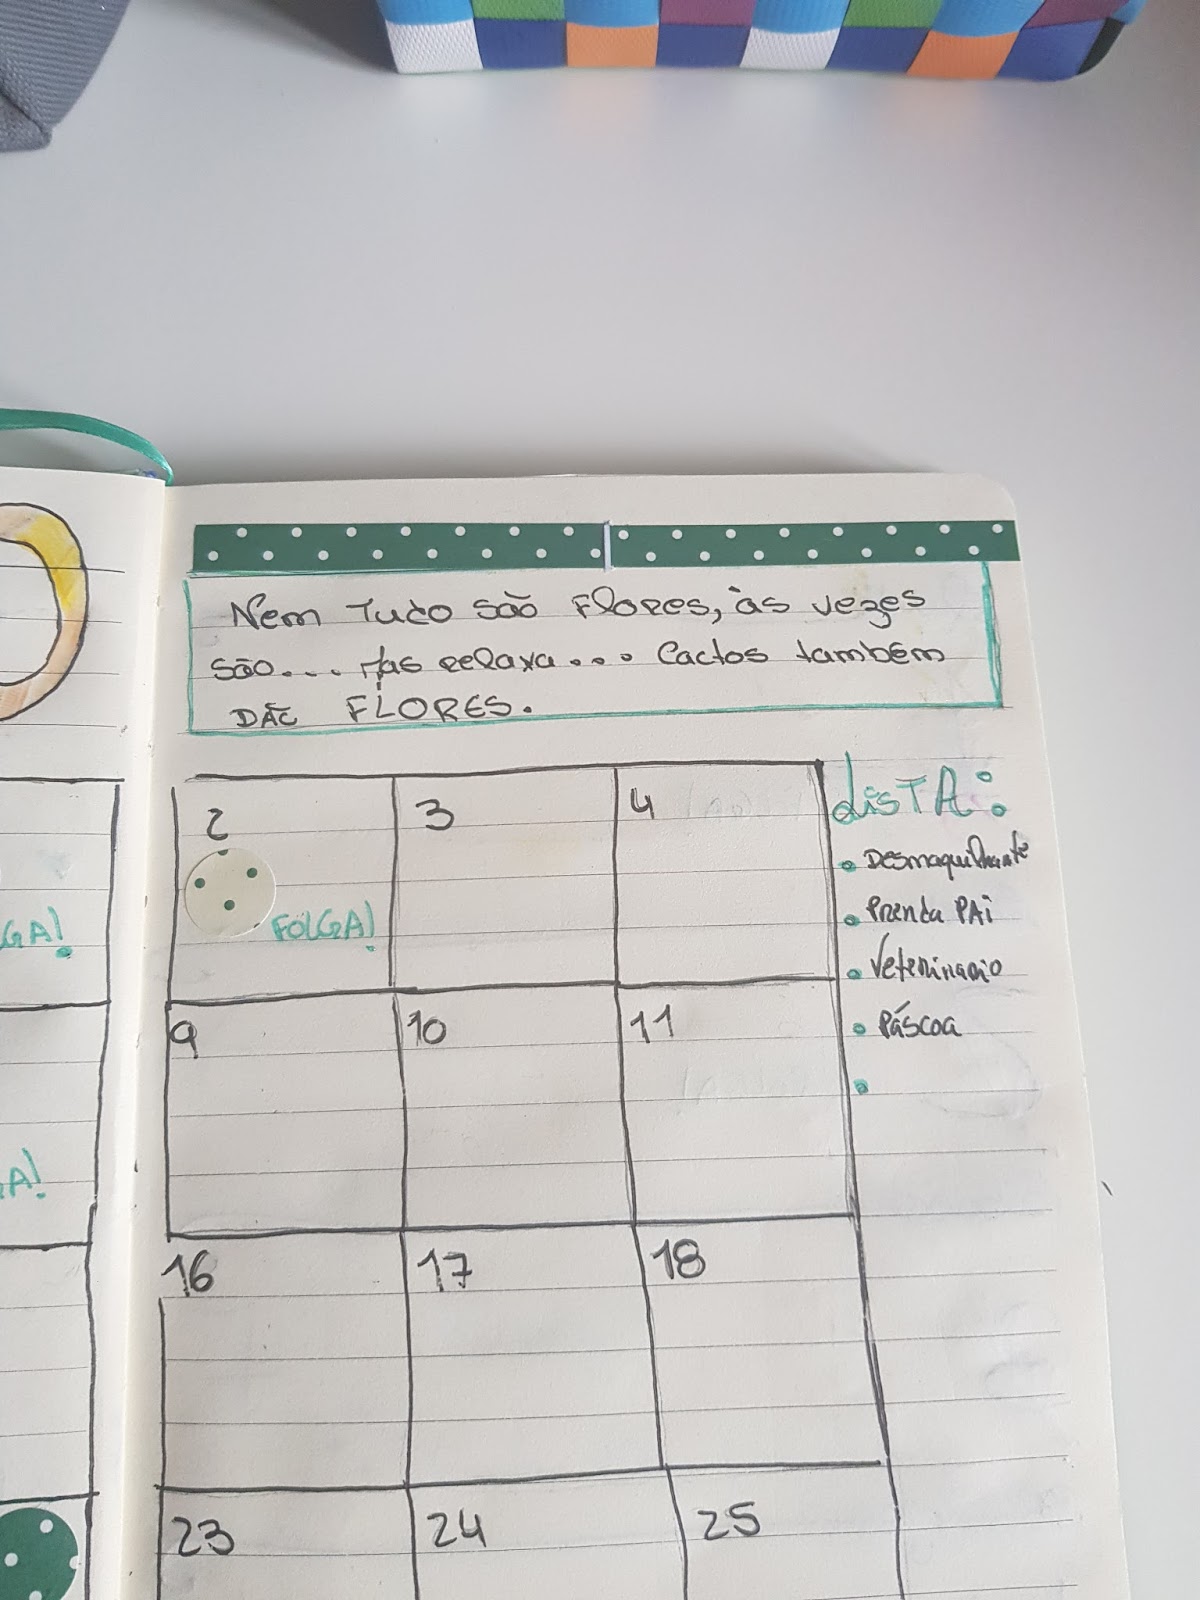 Nem Tudo são Flores, às vezes
são... Mas relaxa... Cactos também
DÃO FLORES.
GA!
A!
2
FOLGA!
3
4
9
10
11
16
17
18
23
24
25
LISTA:
Desmaquilhante
Prenda PAi
Veterinario
Páscoa